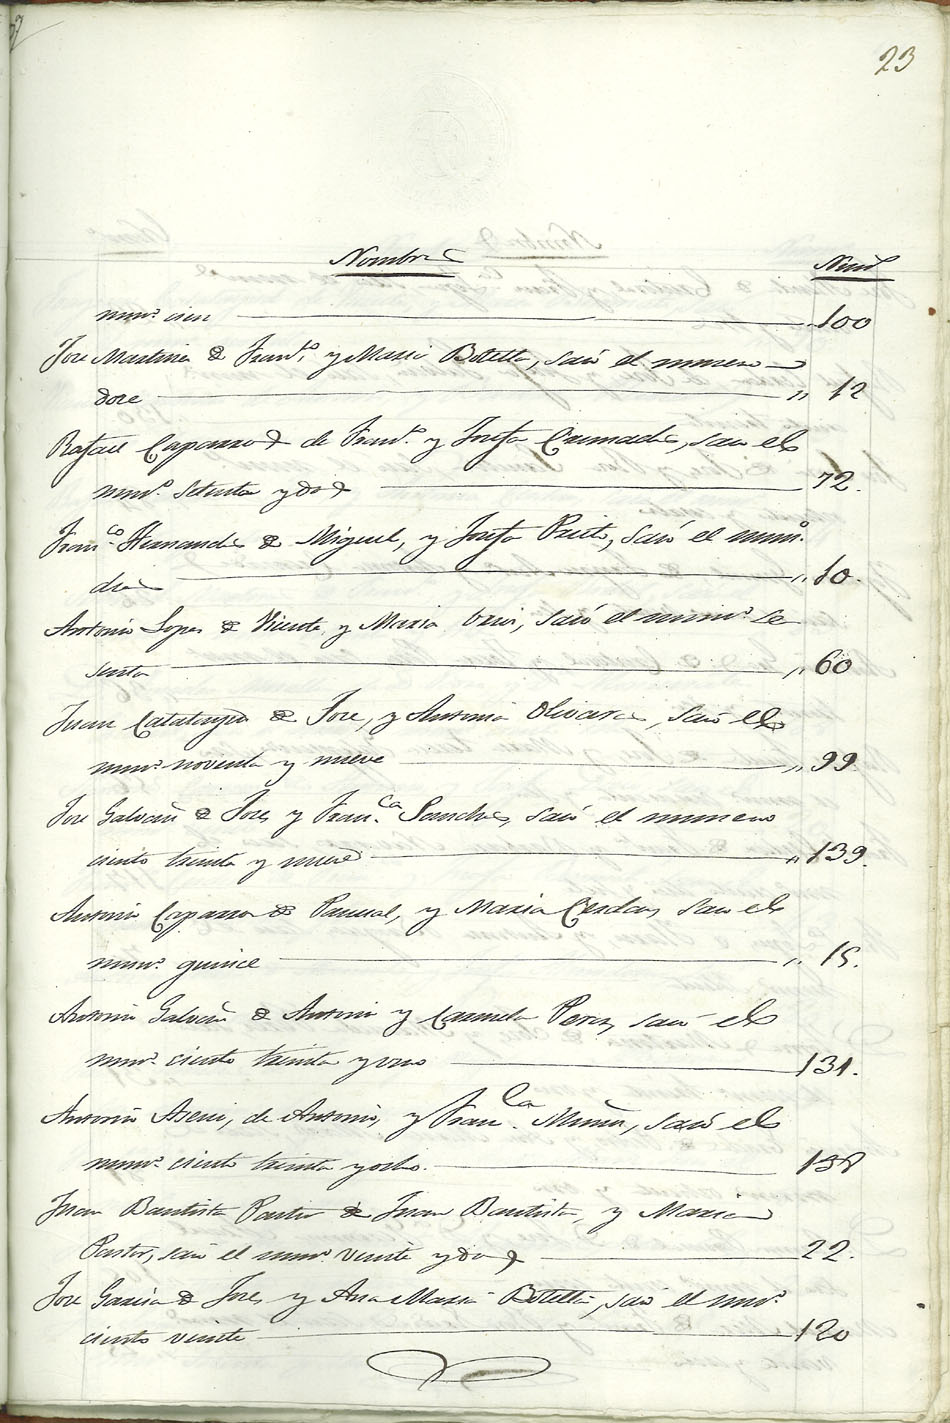 23
Nombres Nums
numo. cien 100
Jose Martinez de Franco. y Maria Botella, sacó el numero
doce 12
Rafael Caparros de Franco. y Josefa, saco el
numo. setenta y dos 72.
Franco. Hernandes de Miguel, y Josefa Prieto, sacó el numo.
dies 10.
Antonio Lopes de Vicente y Maria, sacó el numo. se
senta 60
Juan Calatayud de Jose, y Antonia Olivares, sacó el
numo. noventa y nueve 99.
Jose Galvañ de Jose, y Franca. Sanches, sacó el numero
ciento treinta y nueve 139.
Antonio Caparros de Pascual, y Maria Cerdan, saco el
numo. quince 15.
Antonio Galvañ de Antonio y Carmela Peres, sacó el
numo. ciento treinta y uno 131.
Antonio Asensi, de Antonio, y Franca. Muñoz, sacó el
numo. ciento treinta y ocho. 138
Juan Bautista Pastor de Juan Bautista, y Maria
Pastor, sacó el numo. veinte y dos 22.
Jose Garcia de Jose, y Ana Maria Botella, sacó el numo.
ciento veinte 120